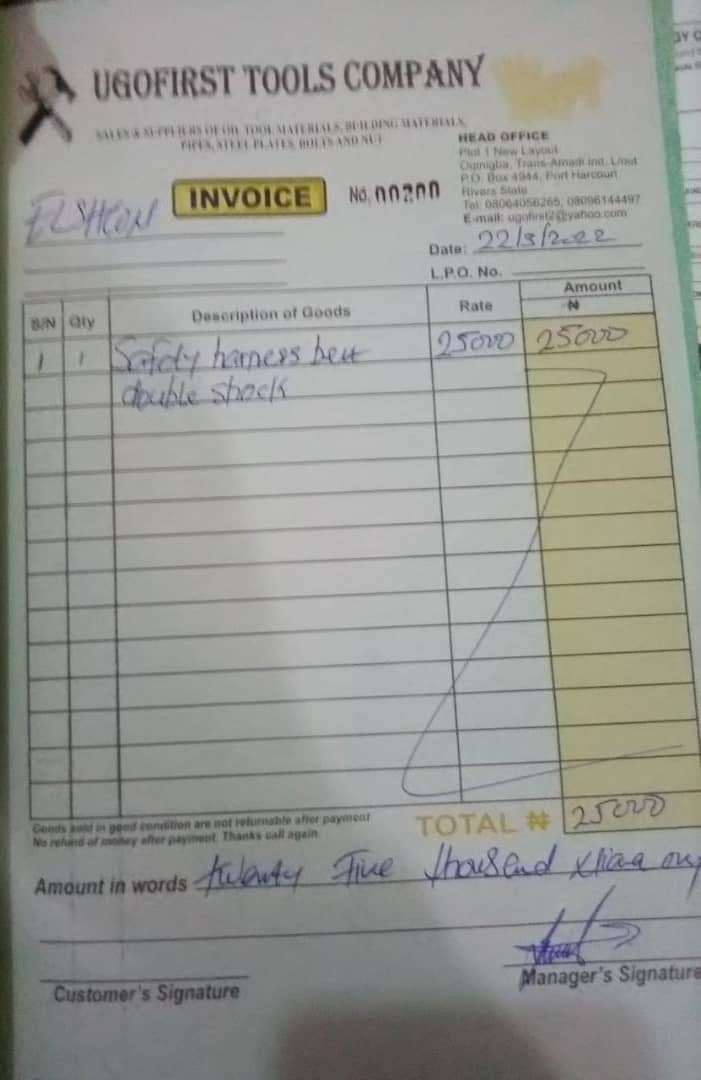 UGOFIRST TOOLS COMPANY
SALES & SUPPLIERS OF OIL TOOL MATERIALS, BUILDING MATERIALS,
PIPES, STEEL PLATES, BOLTS AND NUT
HEAD OFFICE
Plot 1 New Layout
Oginigba, Trans-Amadi Ind. L/out
P.O. Box 4944, Port Harcourt
Rivers State
Tel: 08064056265, 08096144497
E-mail: ugofirst2@yahoo.com
INVOICE
No. 00200
ELSHCON
Date: 22/3/2022
L.P.O. No.
S/N Qty Description of Goods Rate Amount
₦
1 1 Safety harness belt 25000 25000
double shock
Goods sold in good condition are not returnable after payment
No refund of money after payment. Thanks call again
TOTAL ₦ 25000
Amount in words twenty Five thousand
Customer's Signature
Manager's Signature